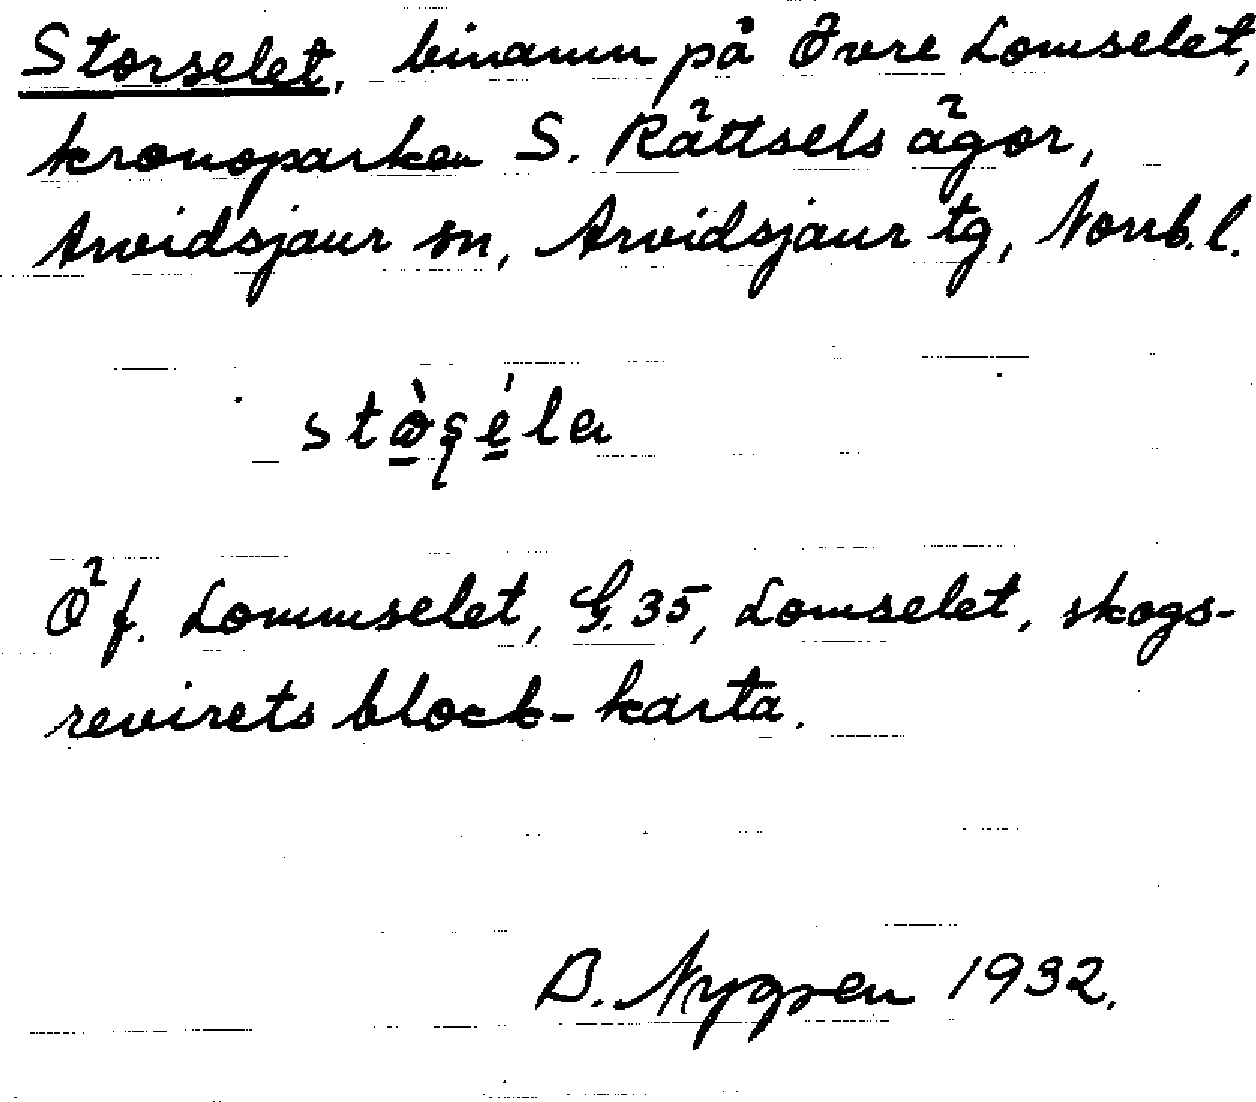 Storselet, binamn på Övre Lomselet,
kronoparken S. Rättsels ägor,
Arvidsjaur sn, Arvidsjaur tg, Norrb. l.
Öf. Lommselet, G. 35, Lomselet, skogs-
revirets block-karta.
B. Nygren 1932.